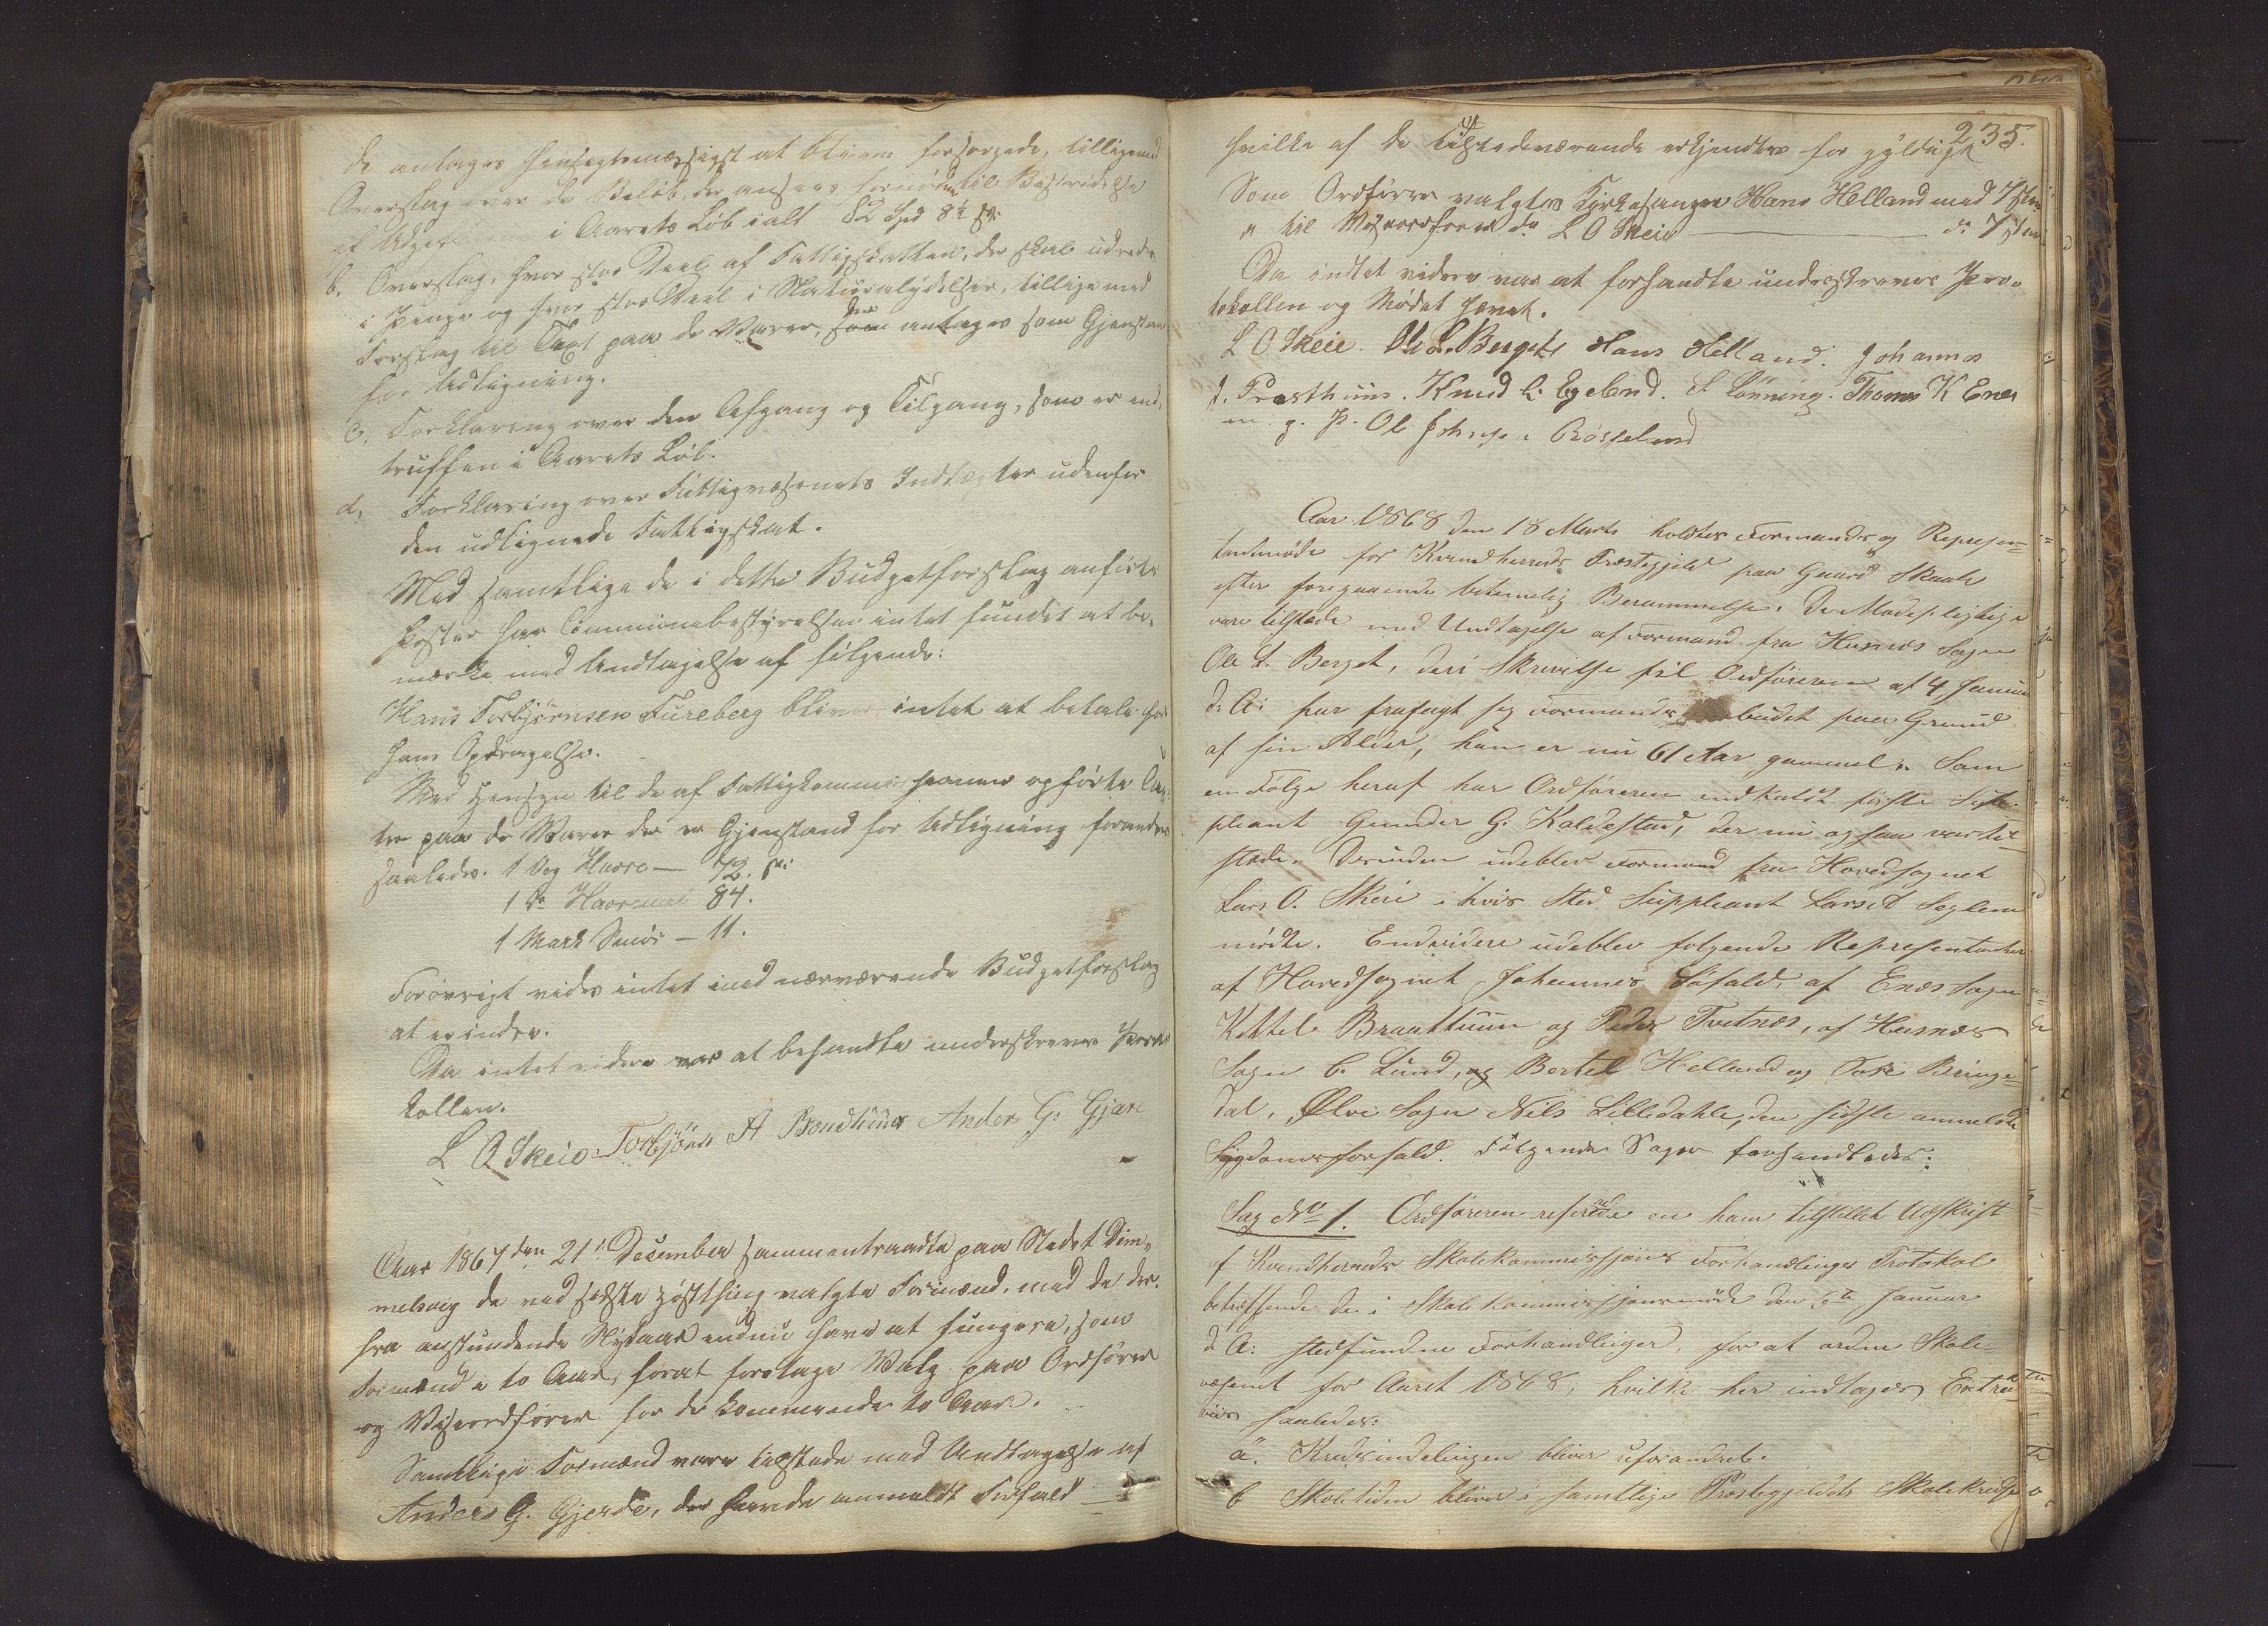 de antages hensigtsmæssigst at blive forsørgede, tilligemed
Overslag over de Beløb, der ansees fornødne til Bestridelse
af Udgifterne i Aarets Løb ialt 82 Spd 8½ s:
b. Overslag, hvor stor Deel af Fattigskatten, der skal udredes
i Penge og hvor stor Deel i Naturalydelser, tilligemed
Forslag til Taxt paa de Varer, der antages som Gjenstand
for Udligning.
c, Forklaring over den Afgang og Tilgang, som er ind-
truffen i Aarets Løb.
d, Forklaring over Fattigvæsenets Indtægter udenfor
den udlignede Fattigskat.
Med samtlige de i dette Budgetforslag anførte
Poster har Communebestyrelsen intet fundet at be-
mærke med Undtagelse af følgende:
Hans Torbjørnsen Fureberg bliver intet at betale for
hans Opdragelse.
Med Hensyn til de af Fattigkommissionen opførte Tax-
ter paa de Varer der er Gjenstand for Udligning forandres
saaledes. 1 Vog Havre — 72. s:
1 Do Havremeel 84.
1 Mark Smør — 11.
Forøvrigt vides intet imod nærværende Budgetforslag
at erindre.
Da intet videre var at behandle underskreves Proto-
kollen.
L O Skeie Torbjörn A Bondhuus Anders G: Gjære
Aar 1867 den 21de December sammentraadte paa Stedet Dim-
melsvig de ved sidste Høstthing valgte Formænd, med de der
fra anstundende Nytaar endnu have at fungere, som
Formænd i to Aar, forat foretage Valg paa Ordfører
og Viseordfører for de kommende to Aar.
Samtlige Formænd vare tilstede med Undtagelse af
Anders G. Gjerde, der havde anmeldt Forfald —
235.
hvilke af de Tilstedeværende erkjendtes for gyldigt
Som Ordfører valgtes Kirkesanger Hans Helland med 7 Stem
" til Viseordfører do L O Skeie — do 7 Stem
Da intet videre var at forhandle underskreves Pro-
tokollen og Mødet hævet.
L O Skeie Ole L. Berget Hans Helland. Johannes
J. Præsthuus. Knud L. Egeland. E Lönning. Thomas K Enes
m. p. P. Ole Johnsen Røsseland
Aar 1868 den 18 Marts holdtes Formands og Represen-
tantmøde for Kvindherreds Præstegjeld paa Gaard Skaale
efter foregaaende betimelig Berammelse. De Mødepligtige
vare tilstede med Undtagelse af Formand fra Husnes Sogn
Ole L. Berget, der i Skrivelse til Ordføreren af 4 Januar
d: A: har frasagt sig Formandsombudet paa Grund
af sin Alder, han er nu 61 Aar gammel. Som
en Følge heraf har Ordføreren indkaldt første Sup-
pleant Gunder G. Kaldestad, der nu ogsaa var til-
stede. Desuden udeblev Formand fra Hovedsognet
Lars O. Skeie i hvis Sted Suppleant Lars Seglem
mødte. Endvidere udeblev følgende Repræsentanter
af Hovedsognet Johannes Løfald, af Enes Sogn
Kittel Braattuun og Peder Tvetnes, af Husnes
Sogn C. Lund, og Bertel Helland og Tore Bringe-
dal, Ølve Sogn Nils Lilledahle, den sidste anmeldte
Sygdomsforfald. Følgende Sager forhandledes:
Sag No 1. Ordføreren refererede en ham tilstillet Udskrift
af Kvindherreds Skolekommissjons Forhandlings Protokol
betreffende de i Skolekommissjonsmøde den 5te Januar
d. A: stedfundne Forhandlinger, for at ordne Skole-
væsenet for Aaret 1868, hvilke her indtages Extra
viis saaledes:
a. Kredsindelingen bliver uforandret.
b Skoletiden bliver i samtlige Præstegjeldets Skolekredse